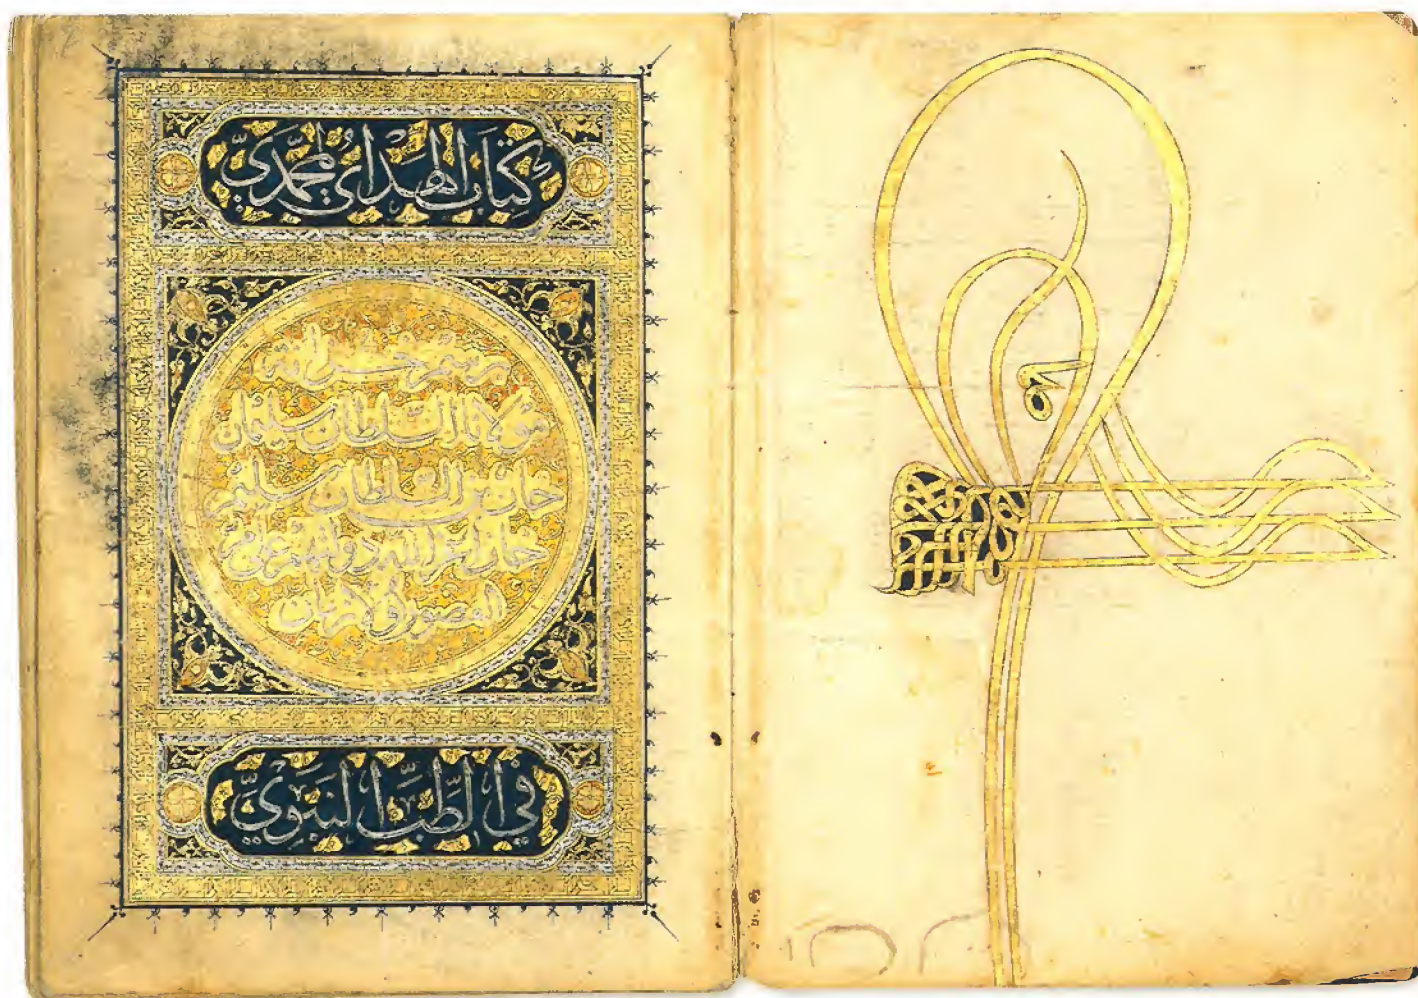 كِتَاب الهَدْي المُحَمَّدِيّ
برسم خزانة
مولانا السلطان سليمان
خان بن السلطان سليم
خان اعز الله دولتهم على مر
العصور والازمان
فِي الطِّبِّ النَّبَوِيِّ